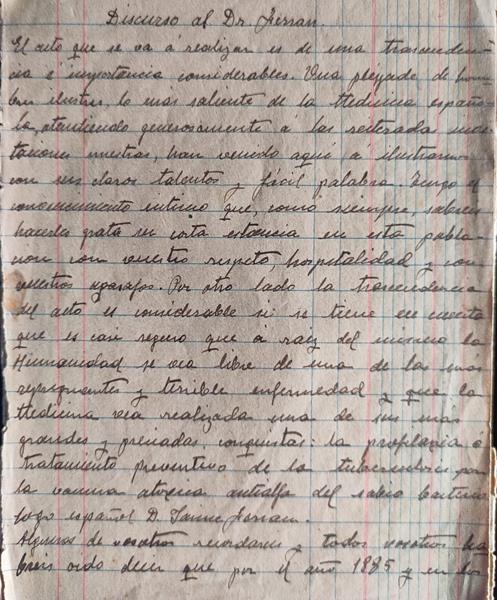 Discurso al Dr. Ferran.
El acto que se va á realizar es de una trascenden-
cia é importancia considerables. Una pleyade de hom-
bres ilustres, lo mas saliente de la Medicina españo-
la, atendiendo generosamente á las reiteradas invi-
taciones nuestras, han venido aquí á ilustrarnos
con sus claros talentos y fácil palabra. Tengo el
convencimiento intimo que, como siempre, sabreis
hacerles grata su corta estancia en esta pobla-
cion con vuestro respeto, hospitalidad y con
vuestros agasajos. Por otro lado la trascendencia
del acto es considerable si se tiene en cuenta
que es casi seguro que á raiz del mismo la
Humanidad se vea libre de una de las mas
repugnantes y terrible enfermedad y que la
Medicina vea realizada una de sus más
grandes y preciadas conquistas: la profilaxia ó
tratamiento preventivo de la tuberculosis por
la vacuna atoxica antialfa del sabio bacterio-
logo español D. Jaime Ferran.
Algunos de vosotros recordareis y todos vosotros ha-
breis oido decir que por el año 1885 y en los